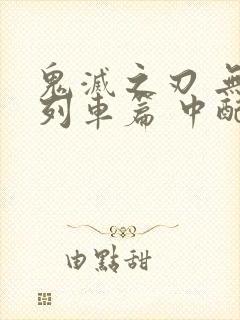 鬼滅之刃 無
列車篇 中配
由點甜